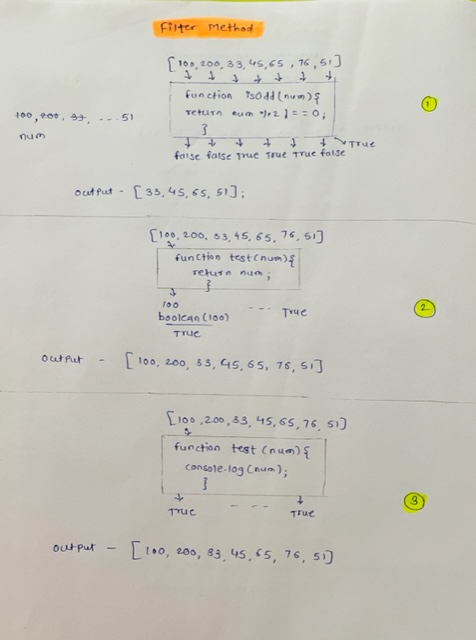 Filter Method
[100, 200, 33, 45, 65, 76, 51]
function isOdd(num){
return num % 2 !== 0;
}
100, 200, 33, ... 51
num
True
false false True True True false
output - [33, 45, 65, 51];
1
[100, 200, 33, 45, 65, 76, 51]
function test(num){
return num;
}
100
boolean(100)
True
--- True
2
output - [100, 200, 33, 45, 65, 76, 51]
[100, 200, 33, 45, 65, 76, 51]
function test (num){
console.log(num);
}
True --- True
3
output - [100, 200, 33, 45, 65, 76, 51]